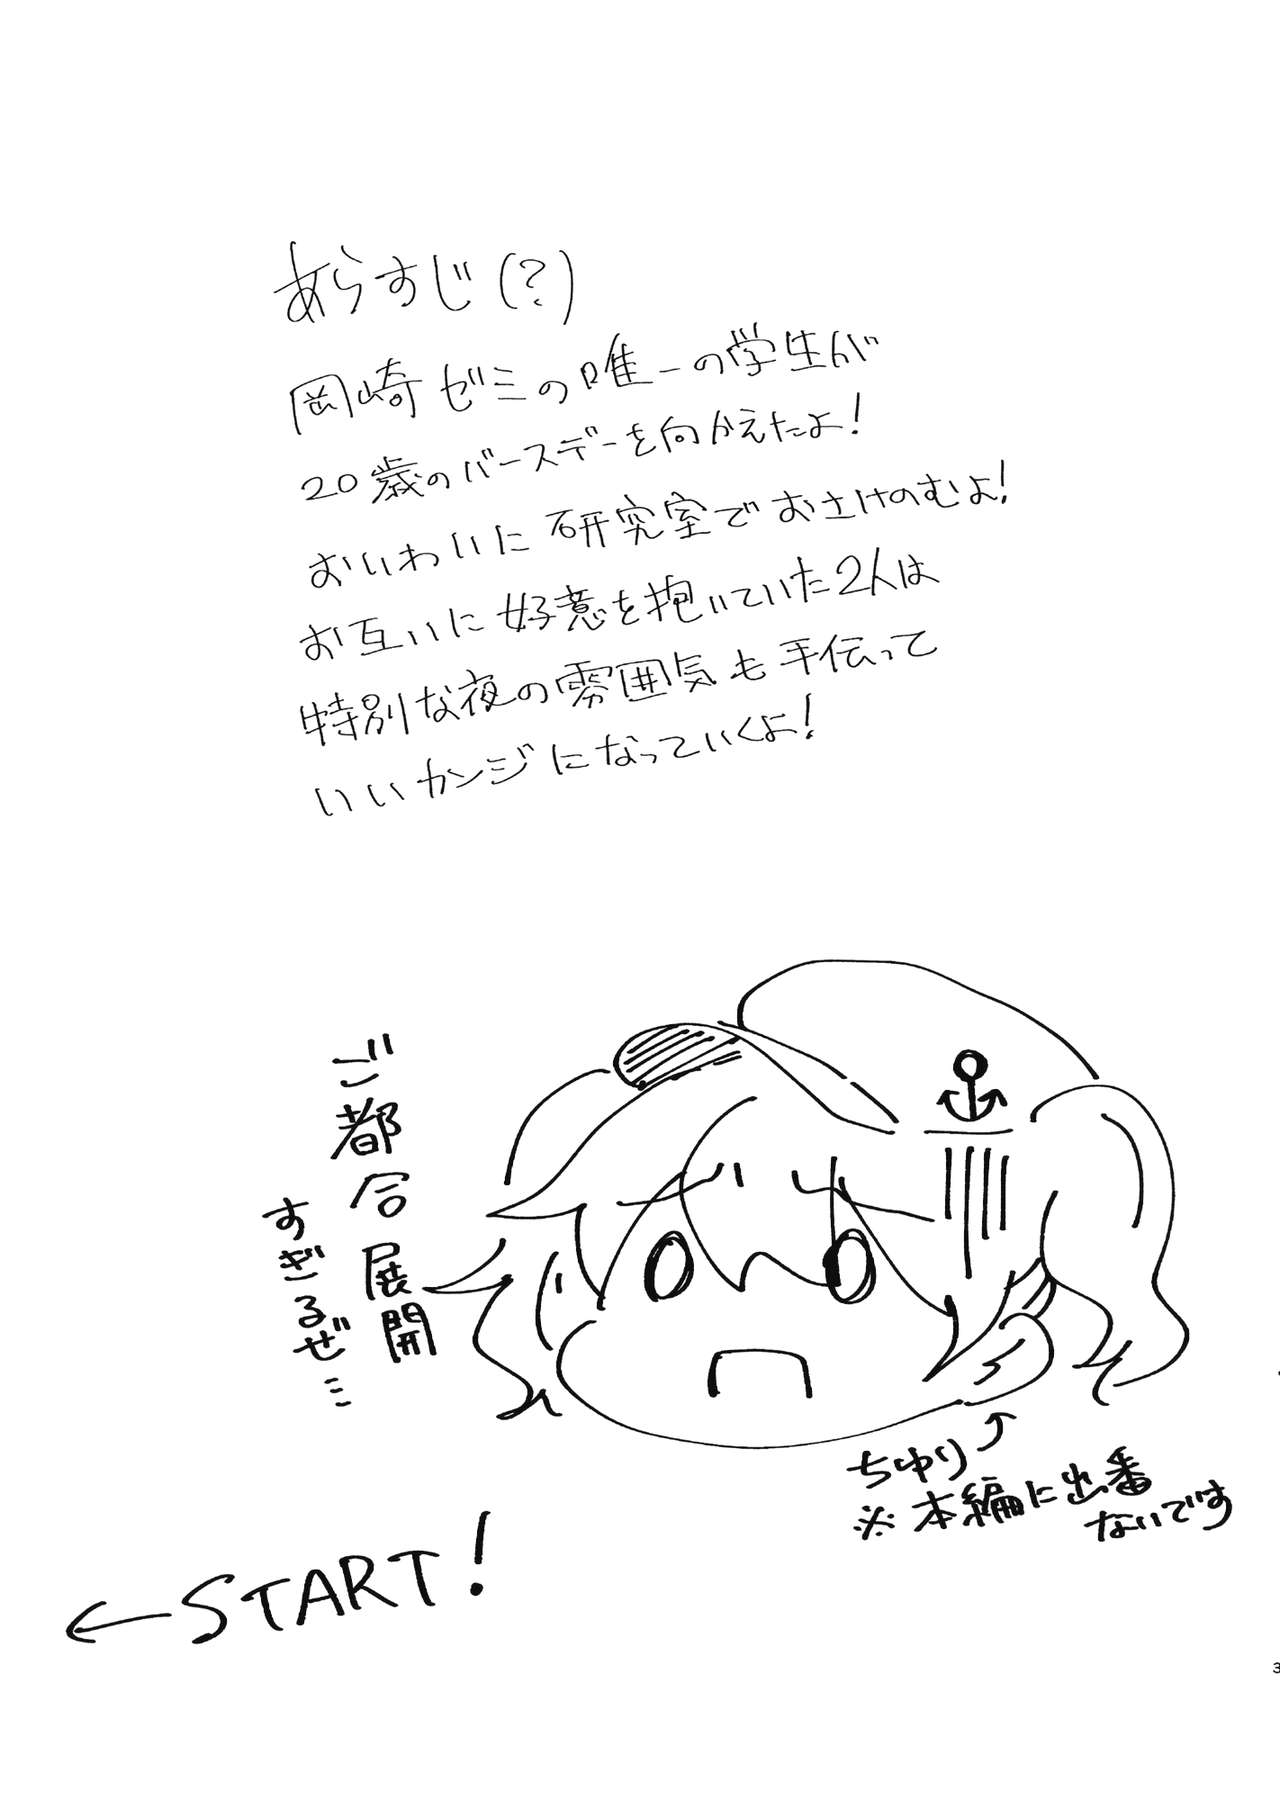 あらすじ(?)
岡崎ゼミの唯一の学生が
20歳のバースデーを向かえたよ!
おいわいに研究室でおさけのむよ!
お互いに好意を抱いていた2人は
特別な夜の雰囲気も手伝って
いいカンジになっていくよ!
ご都合展開
すぎるぜ…
ちゆり↗
※本編に出番
ないです
←START!
3